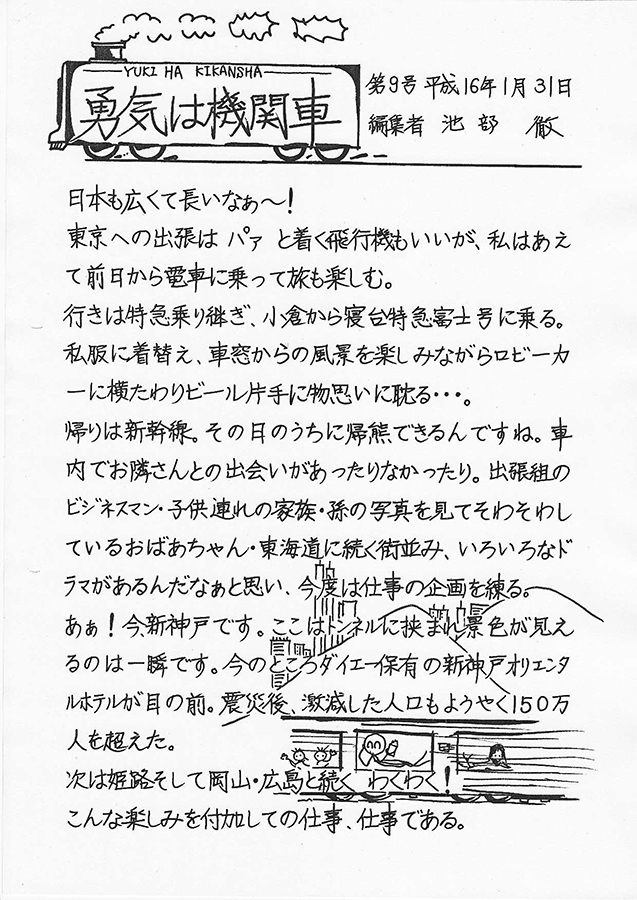 YUKI HA KIKANSHA
勇気は機関車
第9号 平成16年1月31日
編集者 池部 徹
日本も広くて長いなぁ〜！
東京への出張は パァ と着く飛行機もいいが、私はあえ
て前日から電車に乗って旅も楽しむ。
行きは特急乗り継ぎ、小倉から寝台特急富士号に乗る。
私服に着替え、車窓からの風景を楽しみながらロビーカ
ーに横たわりビール片手に物思いに耽る・・・。
帰りは新幹線。その日のうちに帰熊できるんですね。車
内でお隣さんとの出会いがあったりなかったり。出張組の
ビジネスマン・子供連れの家族・孫の写真を見てそわそわし
ているおばあちゃん・東海道に続く街並み、いろいろなド
ラマがあるんだなぁと思い、今度は仕事の企画を練る。
あぁ！今新神戸です。ここはトンネルに挟まれ景色が見え
るのは一瞬です。今のところダイエー保有の新神戸オリエンタ
ルホテルが目の前。震災後、激減した人口もようやく150万
人を超えた。
次は姫路そして岡山・広島と続く わくわく！
こんな楽しみを付加しての仕事、仕事である。